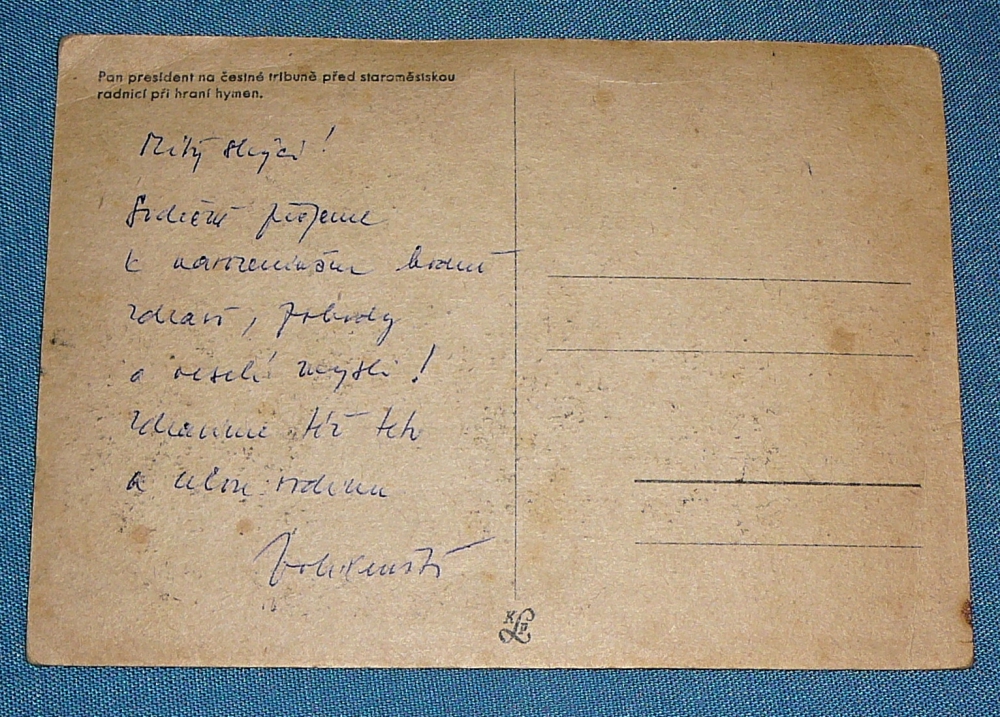 Pan president na čestné tribuně před staroměstskou
radnicí při hraní hymen.
Milý strýči!
Srdečně přejeme
k narozeninám hodně
zdraví, pohody
a veselé mysli!
Zdravíme též teh
a celou rodinu
K